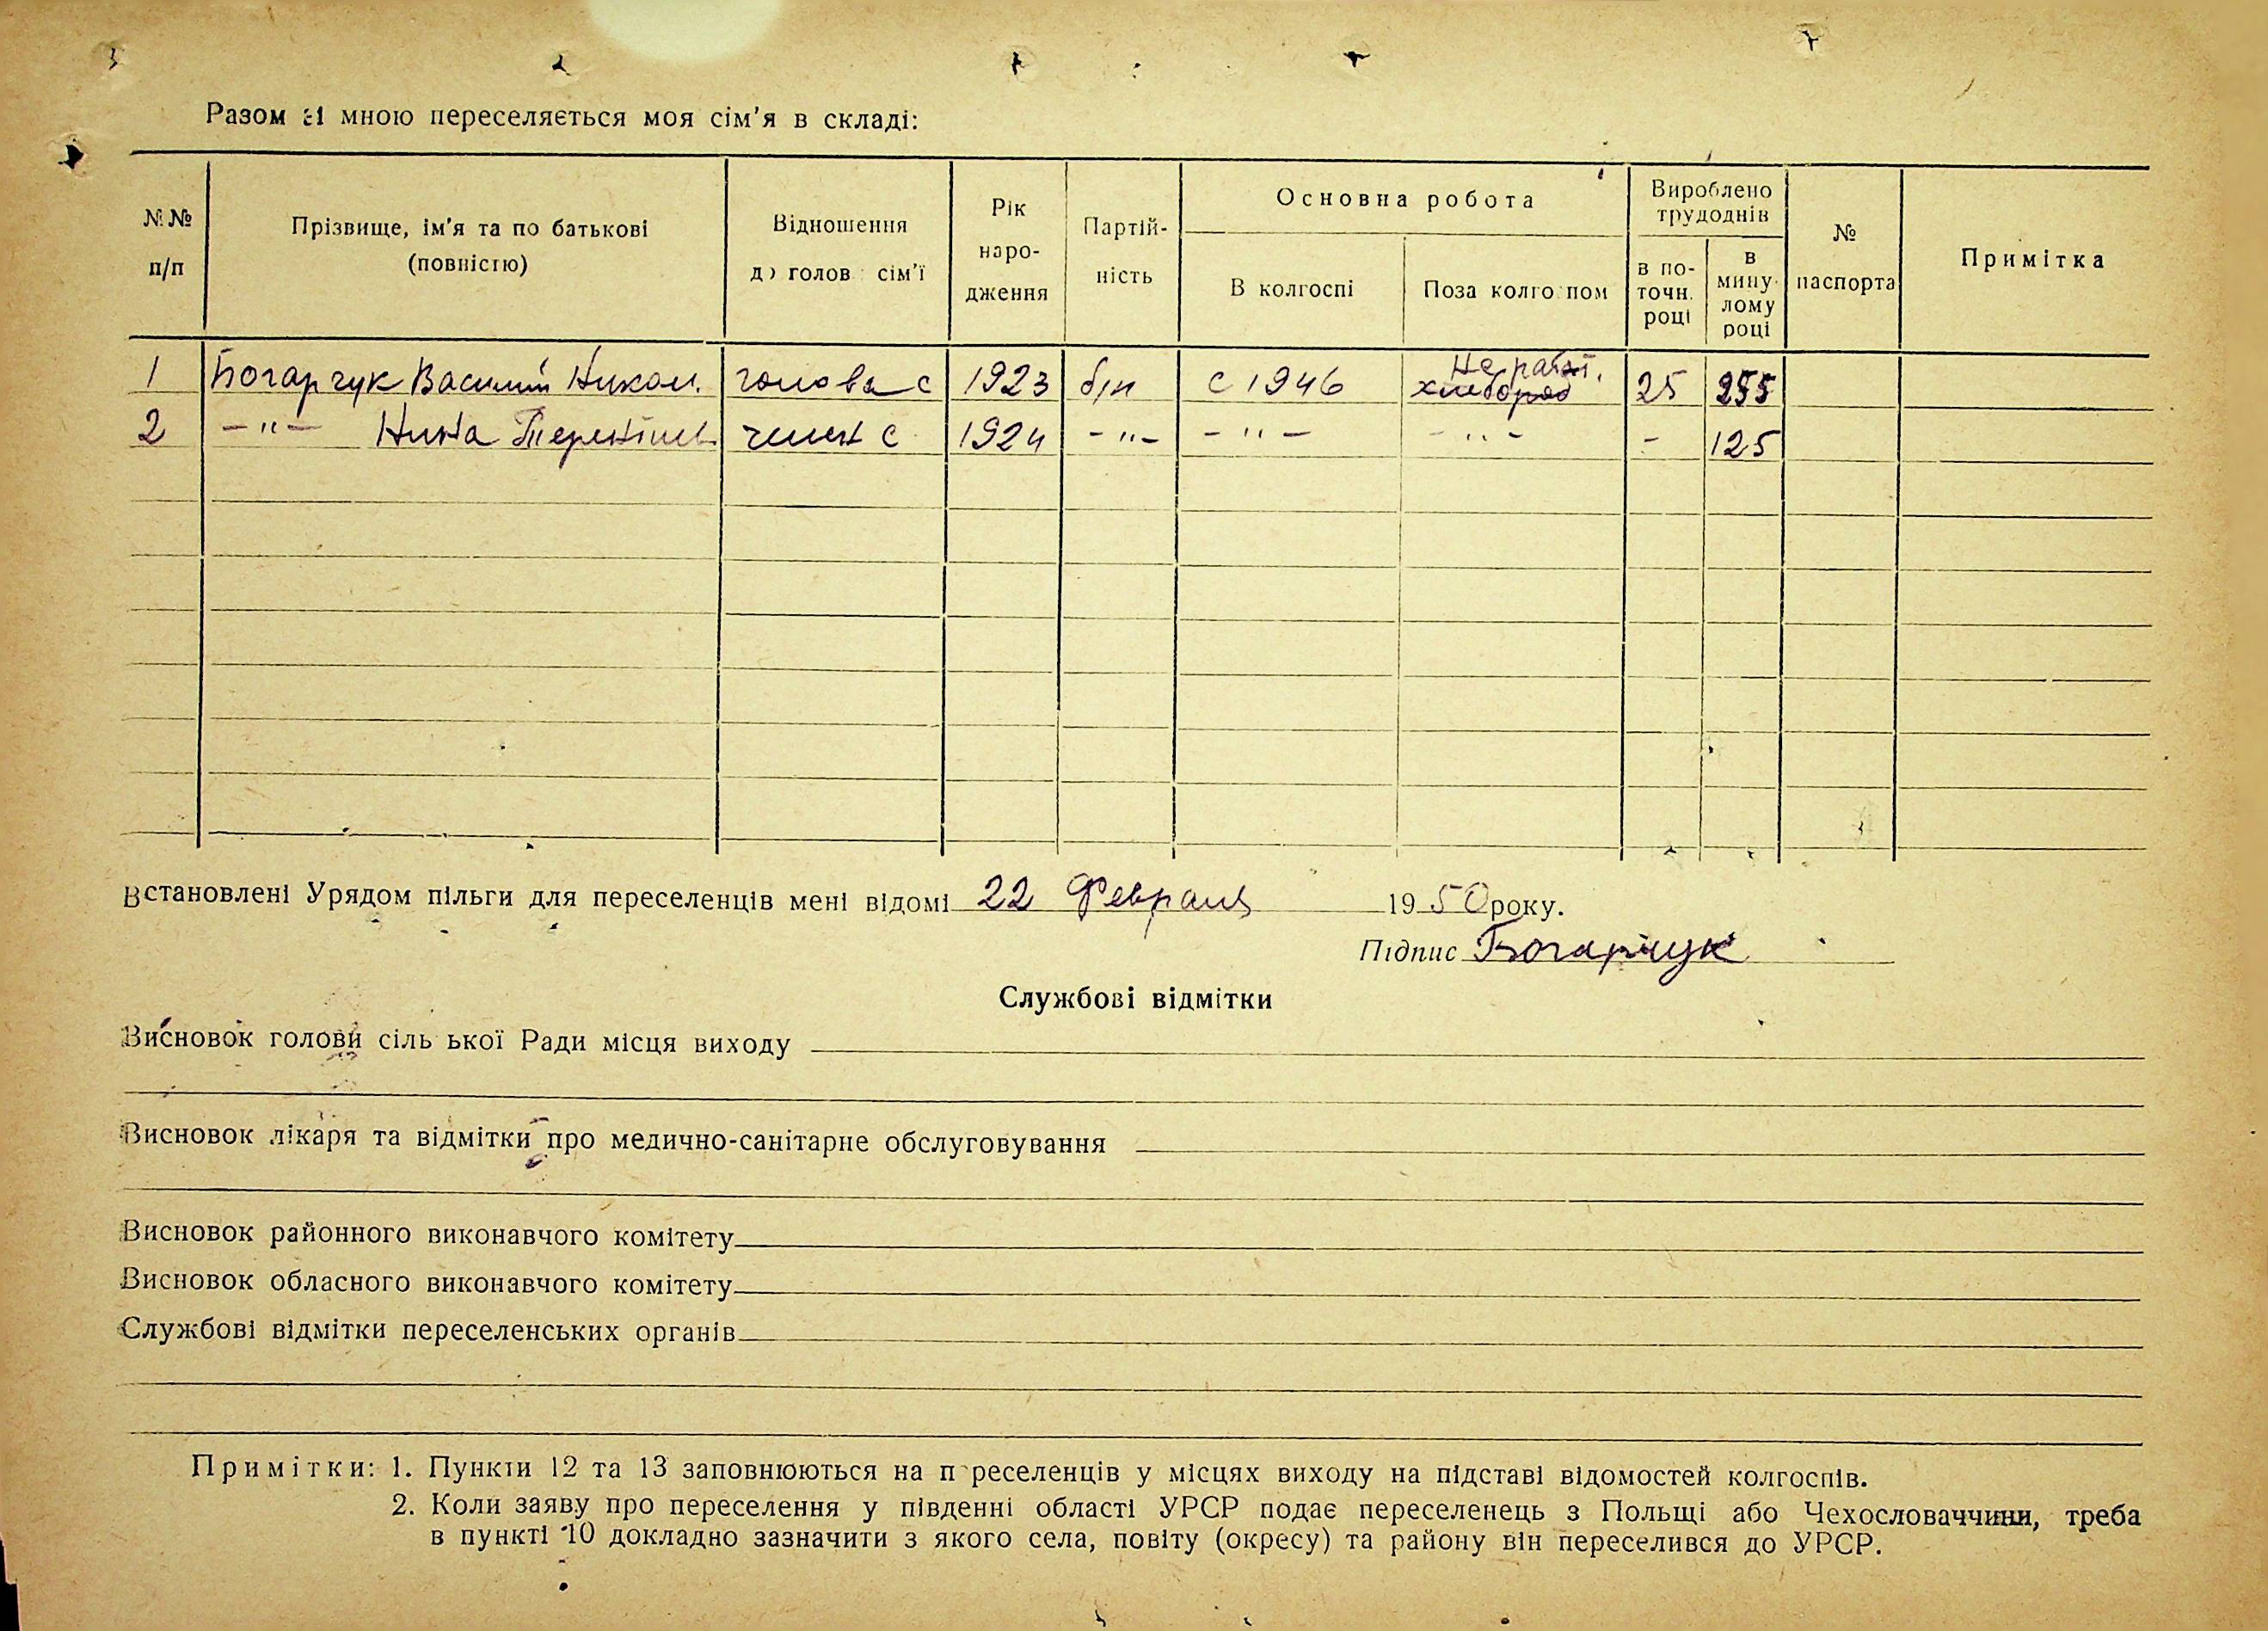 Разом зі мною переселяється моя сім'я в складі:
№№ п/п
Прізвище, ім'я та по батькові (повністю)
Відношення до голов сім'ї
Рік народження
Партійність
Основна робота
В колгоспі
Поза колго пом
Вироблено трудоднів
в поточн. році
в минулому році
№ паспорта
Примітка
1 Богарчук Василий Никол. голова с 1923 б/п с 1946 Не работ. хлебороб 25 255
2 -"- Нина членн с 1924 -"- -"- -"- - 125
Встановлені Урядом пільги для переселенців мені відомі 22 Февраля 1950 року.
Підпис Богарчук
Службові відмітки
Висновок голови сіль ької Ради місця виходу
Висновок лікаря та відмітки про медично-санітарне обслуговування
Висновок районного виконавчого комітету
Висновок обласного виконавчого комітету
Службові відмітки переселенських органів
Примітки: 1. Пункти 12 та 13 заповнюються на п реселенців у місцях виходу на підставі відомостей колгоспів.
2. Коли заяву про переселення у південні області УРСР подає переселенець з Польщі або Чехословаччини, треба
в пункті 10 докладно зазначити з якого села, повіту (окресу) та району він переселився до УРСР.